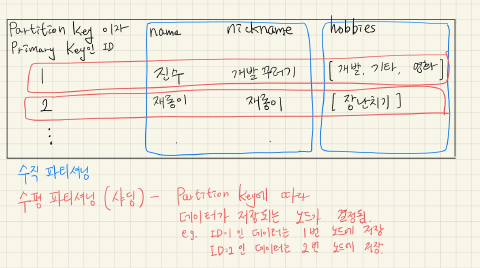 Partition Key 이자
Primary Key인 ID
name nickname hobbies
1 진수 개발꾸러기 [ 개발, 기타, 영화 ]
2 재롱이 재롱이 [ 장난치기 ]
수직 파티셔닝
수평 파티셔닝 (샤딩) - Partition Key에 따라
데이터가 저장되는 노드가 결정됨.
e.g. ID:1인 데이터는 1번 노드에 저장
ID:2인 데이터는 2번 노드에 저장.